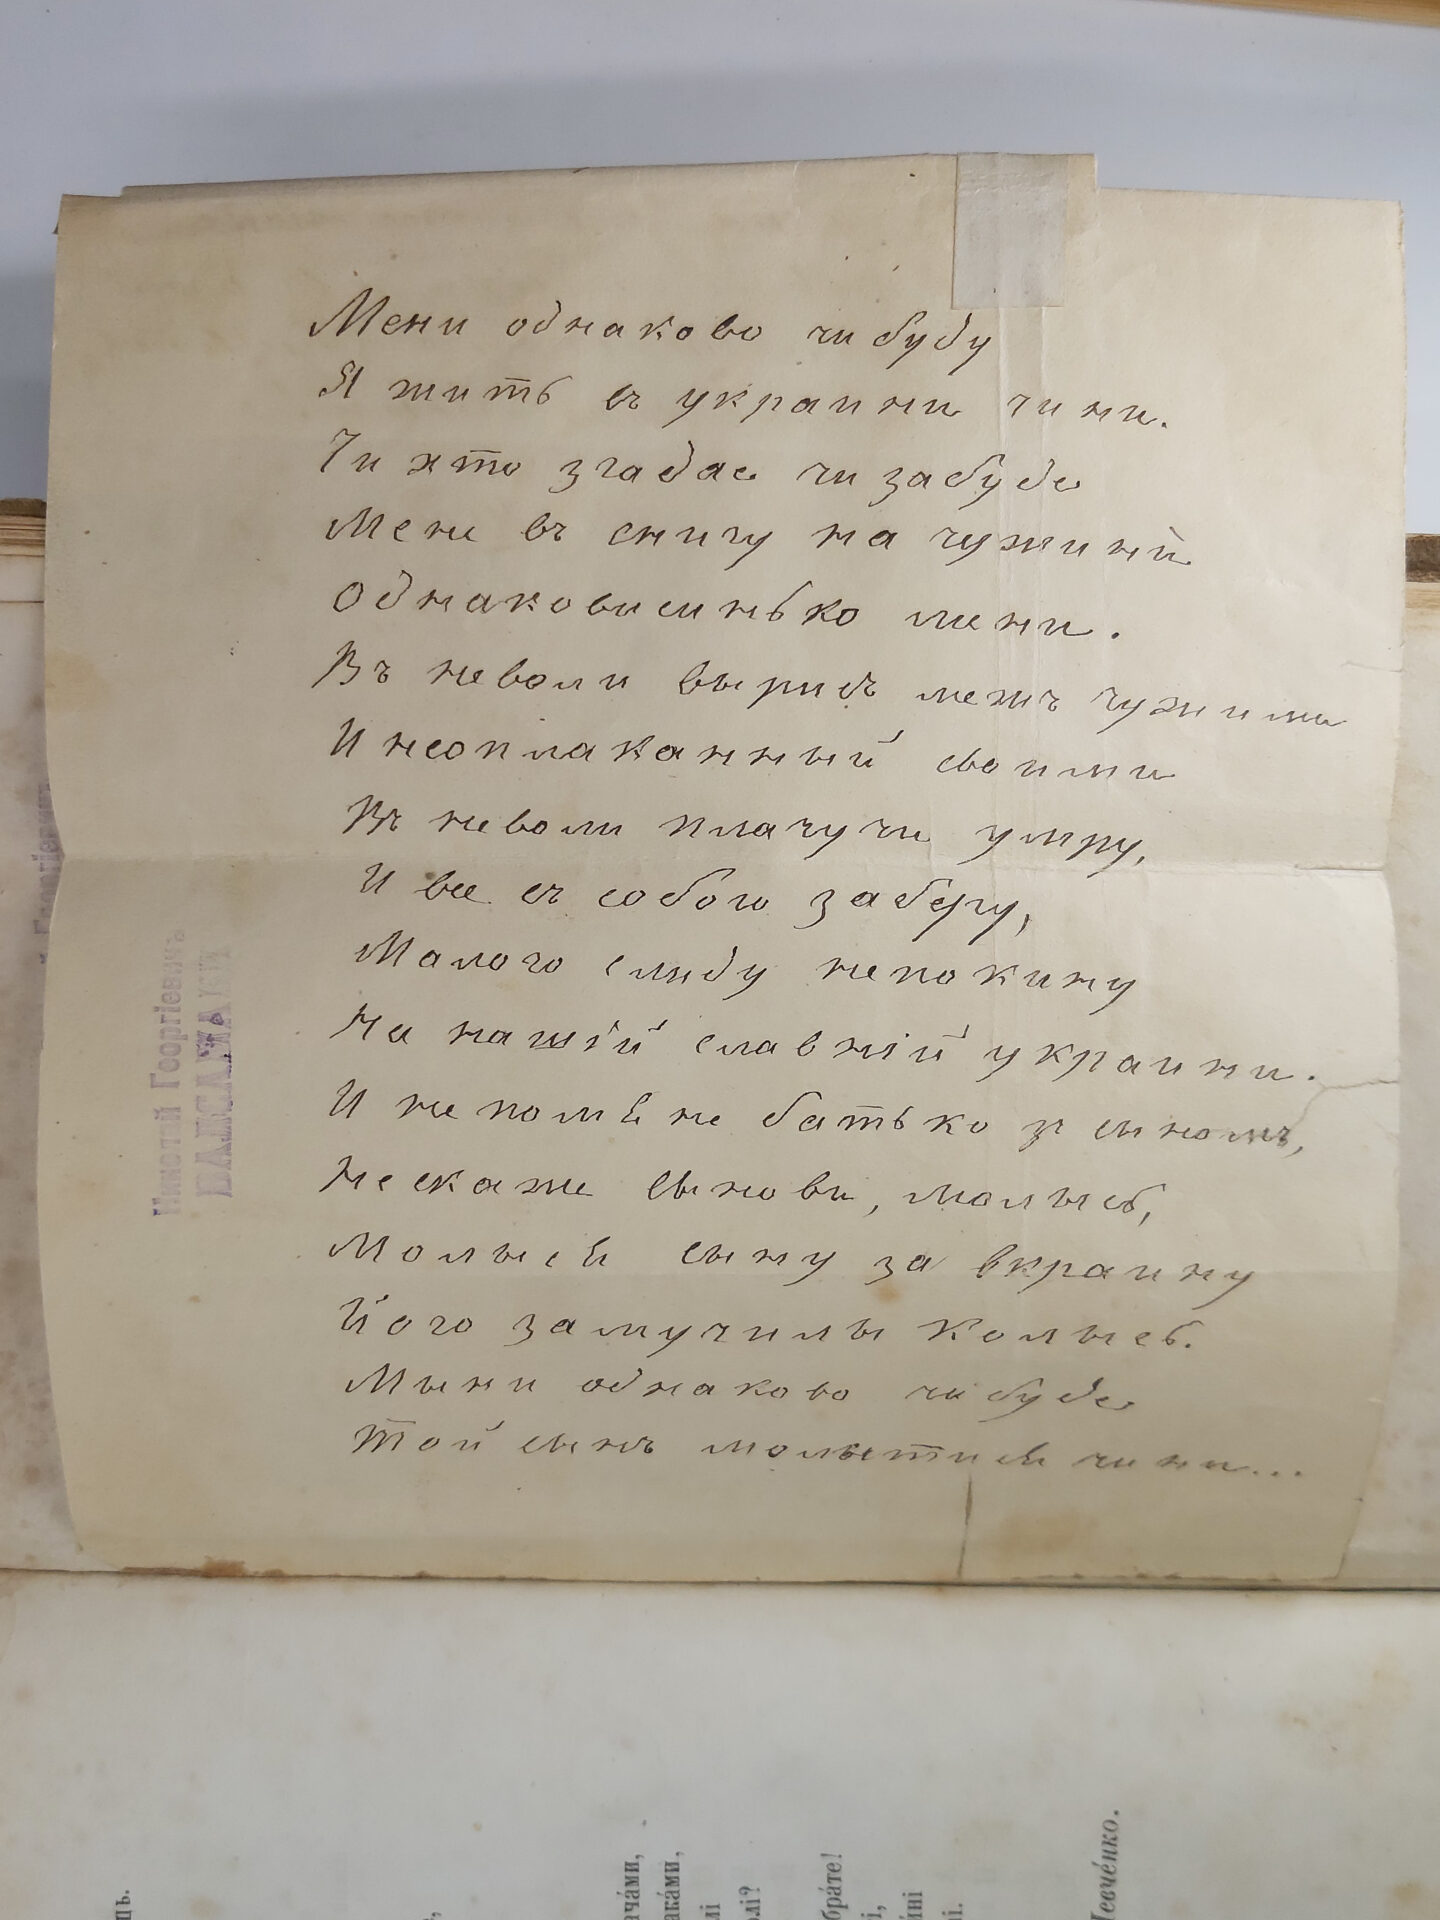 Мени однаково чи буду
Я жить въ украини чи ни.
Чи хто згадае чи забуде
Мене въ снигу на чужини
Однаковисинько мени.
Въ неволи вырисъ межъ чужими
И неоплаканный своими
Въ неволи плачучи умру,
И все съ собою заберу,
Малого слиду непокину
На нашій славній украини.
И не помѣне батько зъ сыномъ,
Не скаже сынови, молысь,
Молысѣ сыну за вкраину
Його замучилы колысь.
Мыни однаково чи буде
Той сынъ молытисѣ чи ни...
Георгіевичъ
чáми,
áками,
лі
лі?
брáте!
і,
и́ні
ні.
Шевчéнко.
ць.